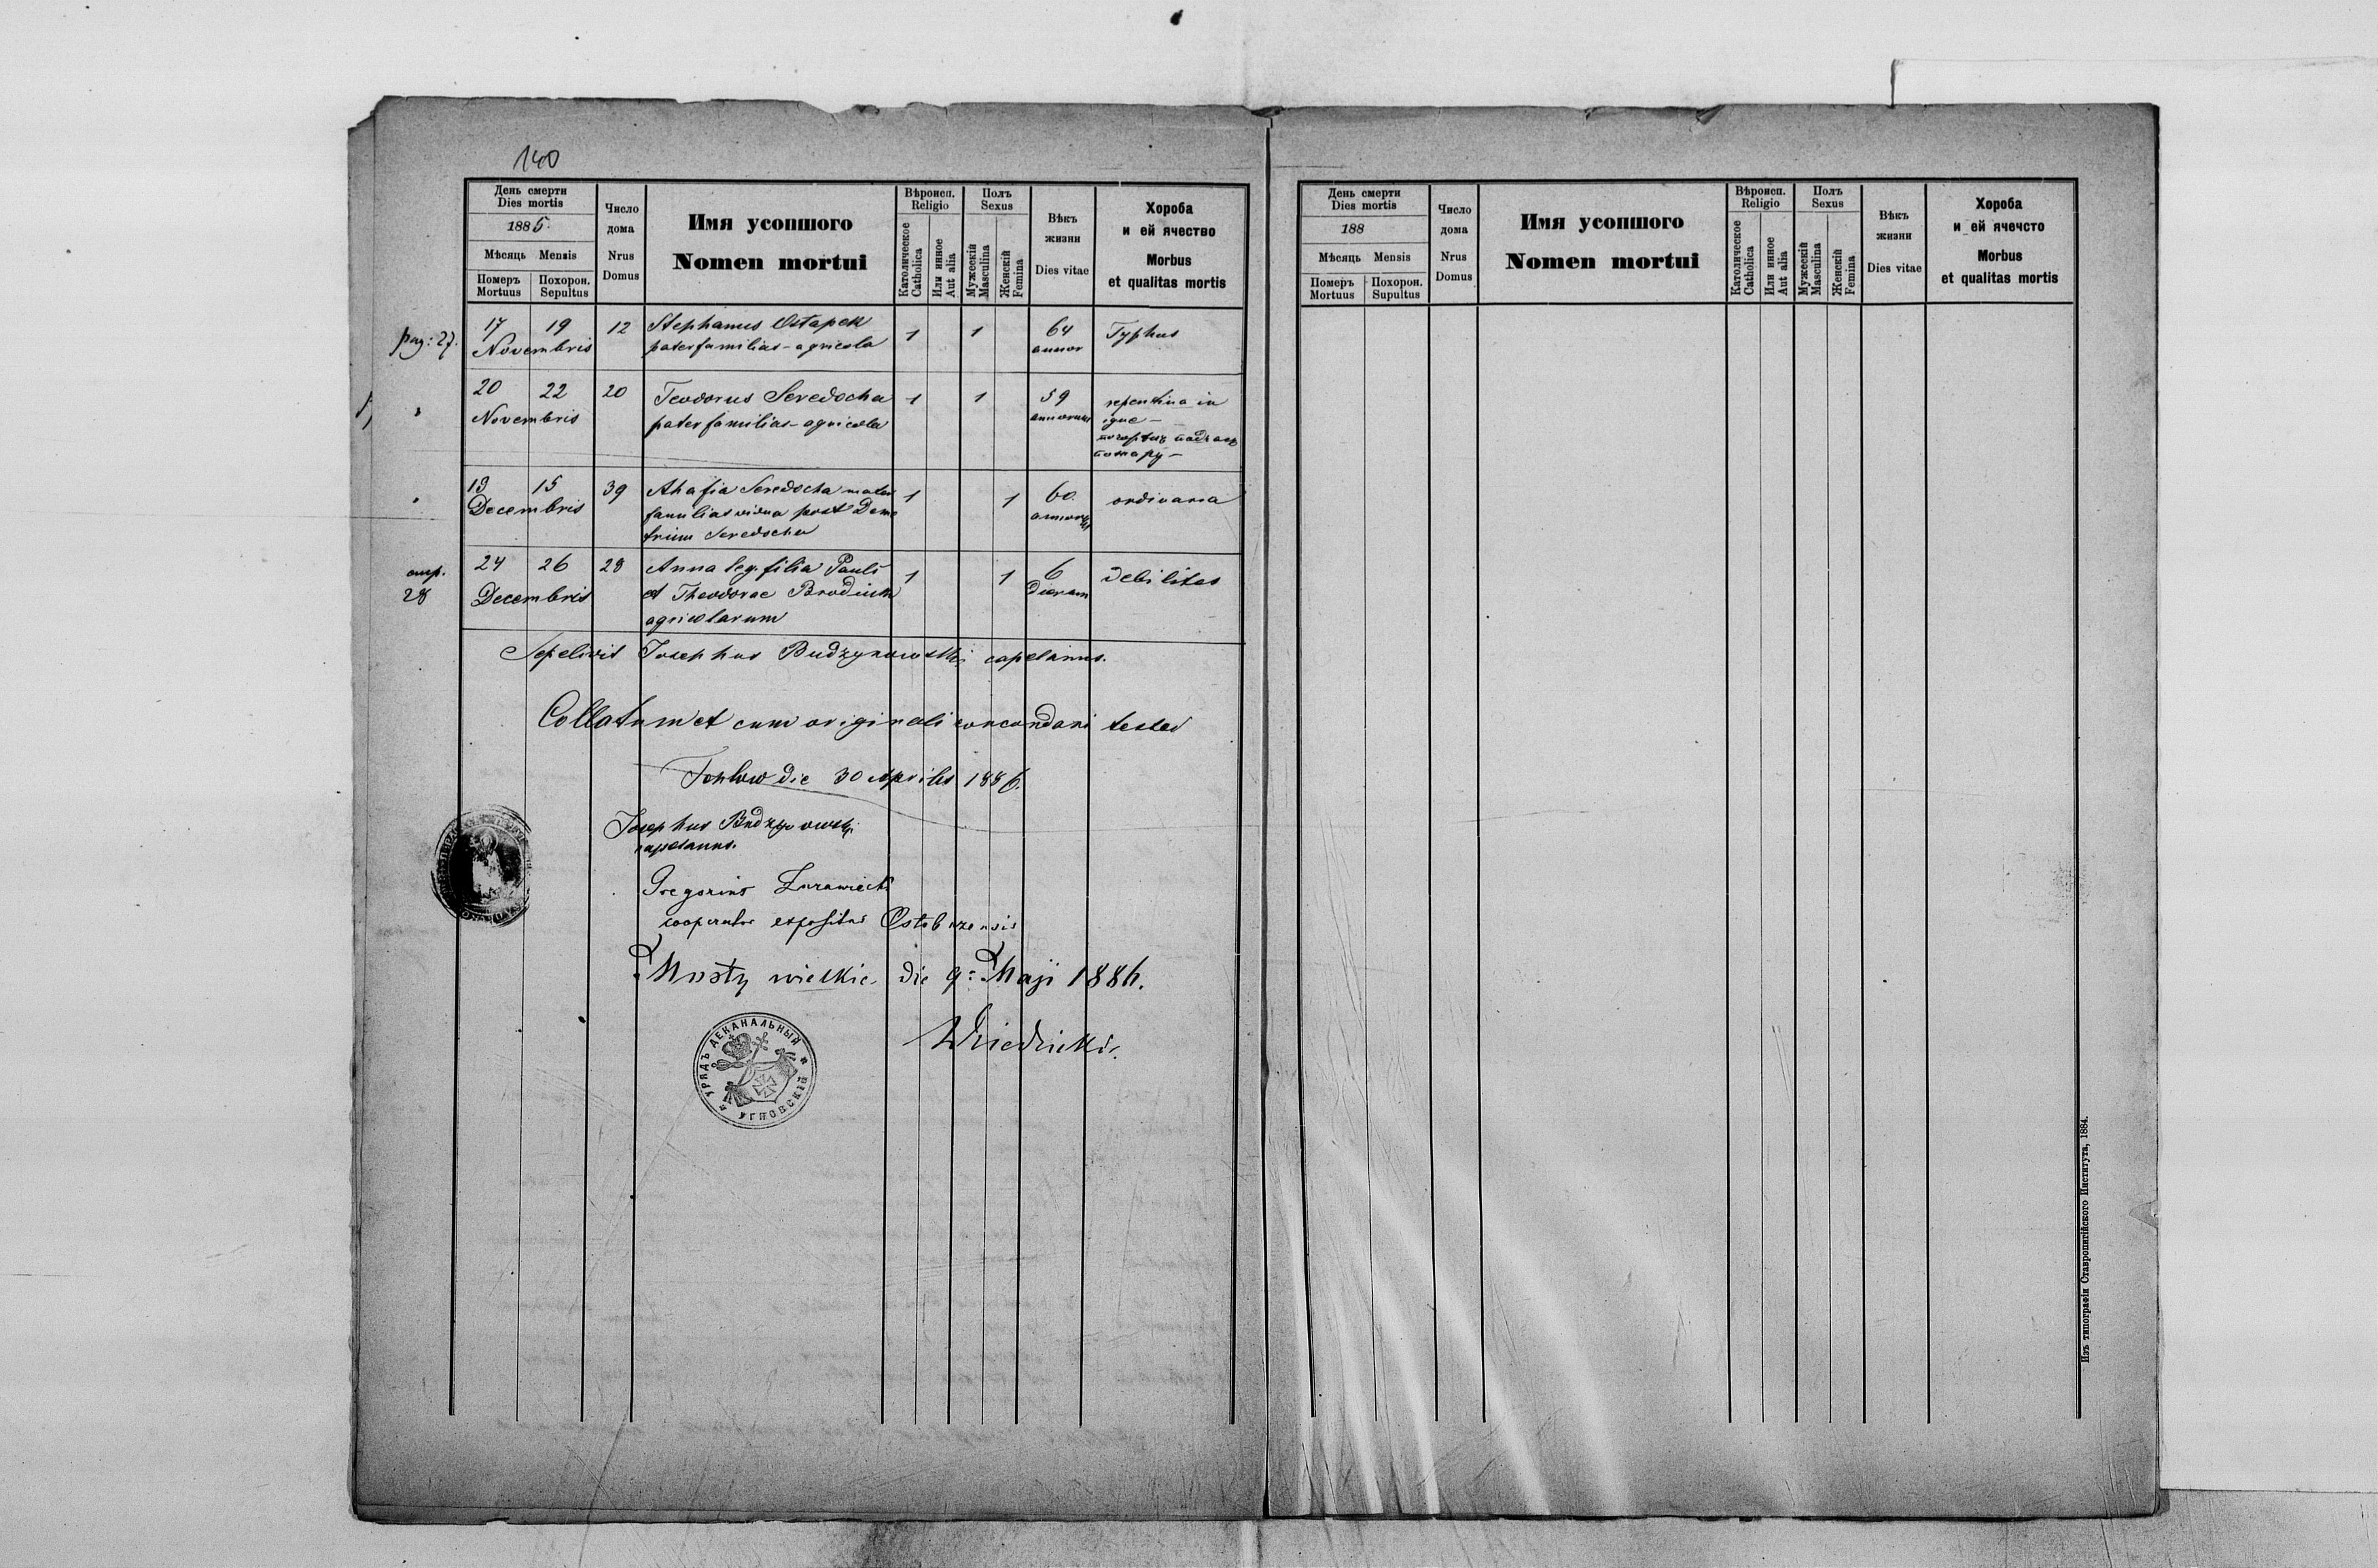 140
День смерти
Dies mortis
1885
Мѣсяць Mensis
Померъ Похорон.
Mortuus Sepultus
Число
дома
Nrus
Domus
Имя усопшого
Nomen mortui
Вѣроисп.
Religio
Католическое
Catholica
Или инное
Aut alia
Полъ
Sexus
Мужескій
Masculina
Женскій
Femina
Вѣкъ
жизни
Dies vitae
Хороба
и ей ячество
Morbus
et qualitas mortis
pag: 27.
17 19 12 Stephanus Ostapek 1 1 64 Typhus
Novembris paterfamilias - agricola annor
20 22 20 Teodorus Seredocha 1 1 59 repentina in
Novembris paterfamilias - agricola annorum igne -
пожару -
13 15 39 Ahafia Seredocha mater 1 1 60 ordinaria
Decembris familias vidua post Deme annorum
trium Seredocha
стр.
28
24 26 28 Anna leg. filia Pauli 1 1 6 debilitas
Decembris et Theodorae Brodiuk dierum
agricolarum
Sepelivit Josephus Budzynowski capelanus.
Collatum et cum originali concordari testor
die 30 Aprilis 1886.
Josephus Budzynowski
capelanus.
Gregorius Zurawiecki
cooperator expositus
Mosty wielkie die 9: Maji 1886.
УРЯДЪ ДЕКАНАЛЬНЫЙ
УГНОВСКІЙ
День смерти
Dies mortis
188
Мѣсяць Mensis
Померъ Похорон.
Mortuus Supultus
Число
дома
Nrus
Domus
Имя усопшого
Nomen mortui
Вѣроисп.
Religio
Католическое
Catholica
Или инное
Aut alia
Полъ
Sexus
Мужескій
Masculina
Женскій
Femina
Вѣкъ
жизни
Dies vitae
Хороба
и ей ячечсто
Morbus
et qualitas mortis
Изъ типографіи Ставропигійского Института, 1884.